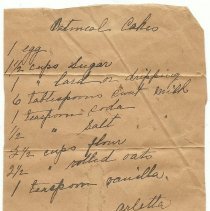 Oatmeal Cakes
1 egg
1½ cups sugar
1 " lard or dripping
6 tablespoons sour milk
1 teaspoon soda
½ " salt
2½ cups flour
2½ " rolled oats
1 teaspoon vanilla
Arletta